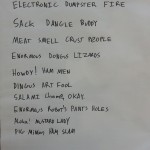 ELECTRONIC DUMPSTER FIRE
SACK DANGLE BUDDY
MEAT SMELL CRUST PEOPLE
ENORMOUS DONGUS LIZARDS
HOWDY! HAM MEN
DINGUS ART FOOL
SALAMI CHOMP, OKAY.
ENORMOUS ROBOT'S PANTS HOLES
MUSTARD LADY
HAM SLAM